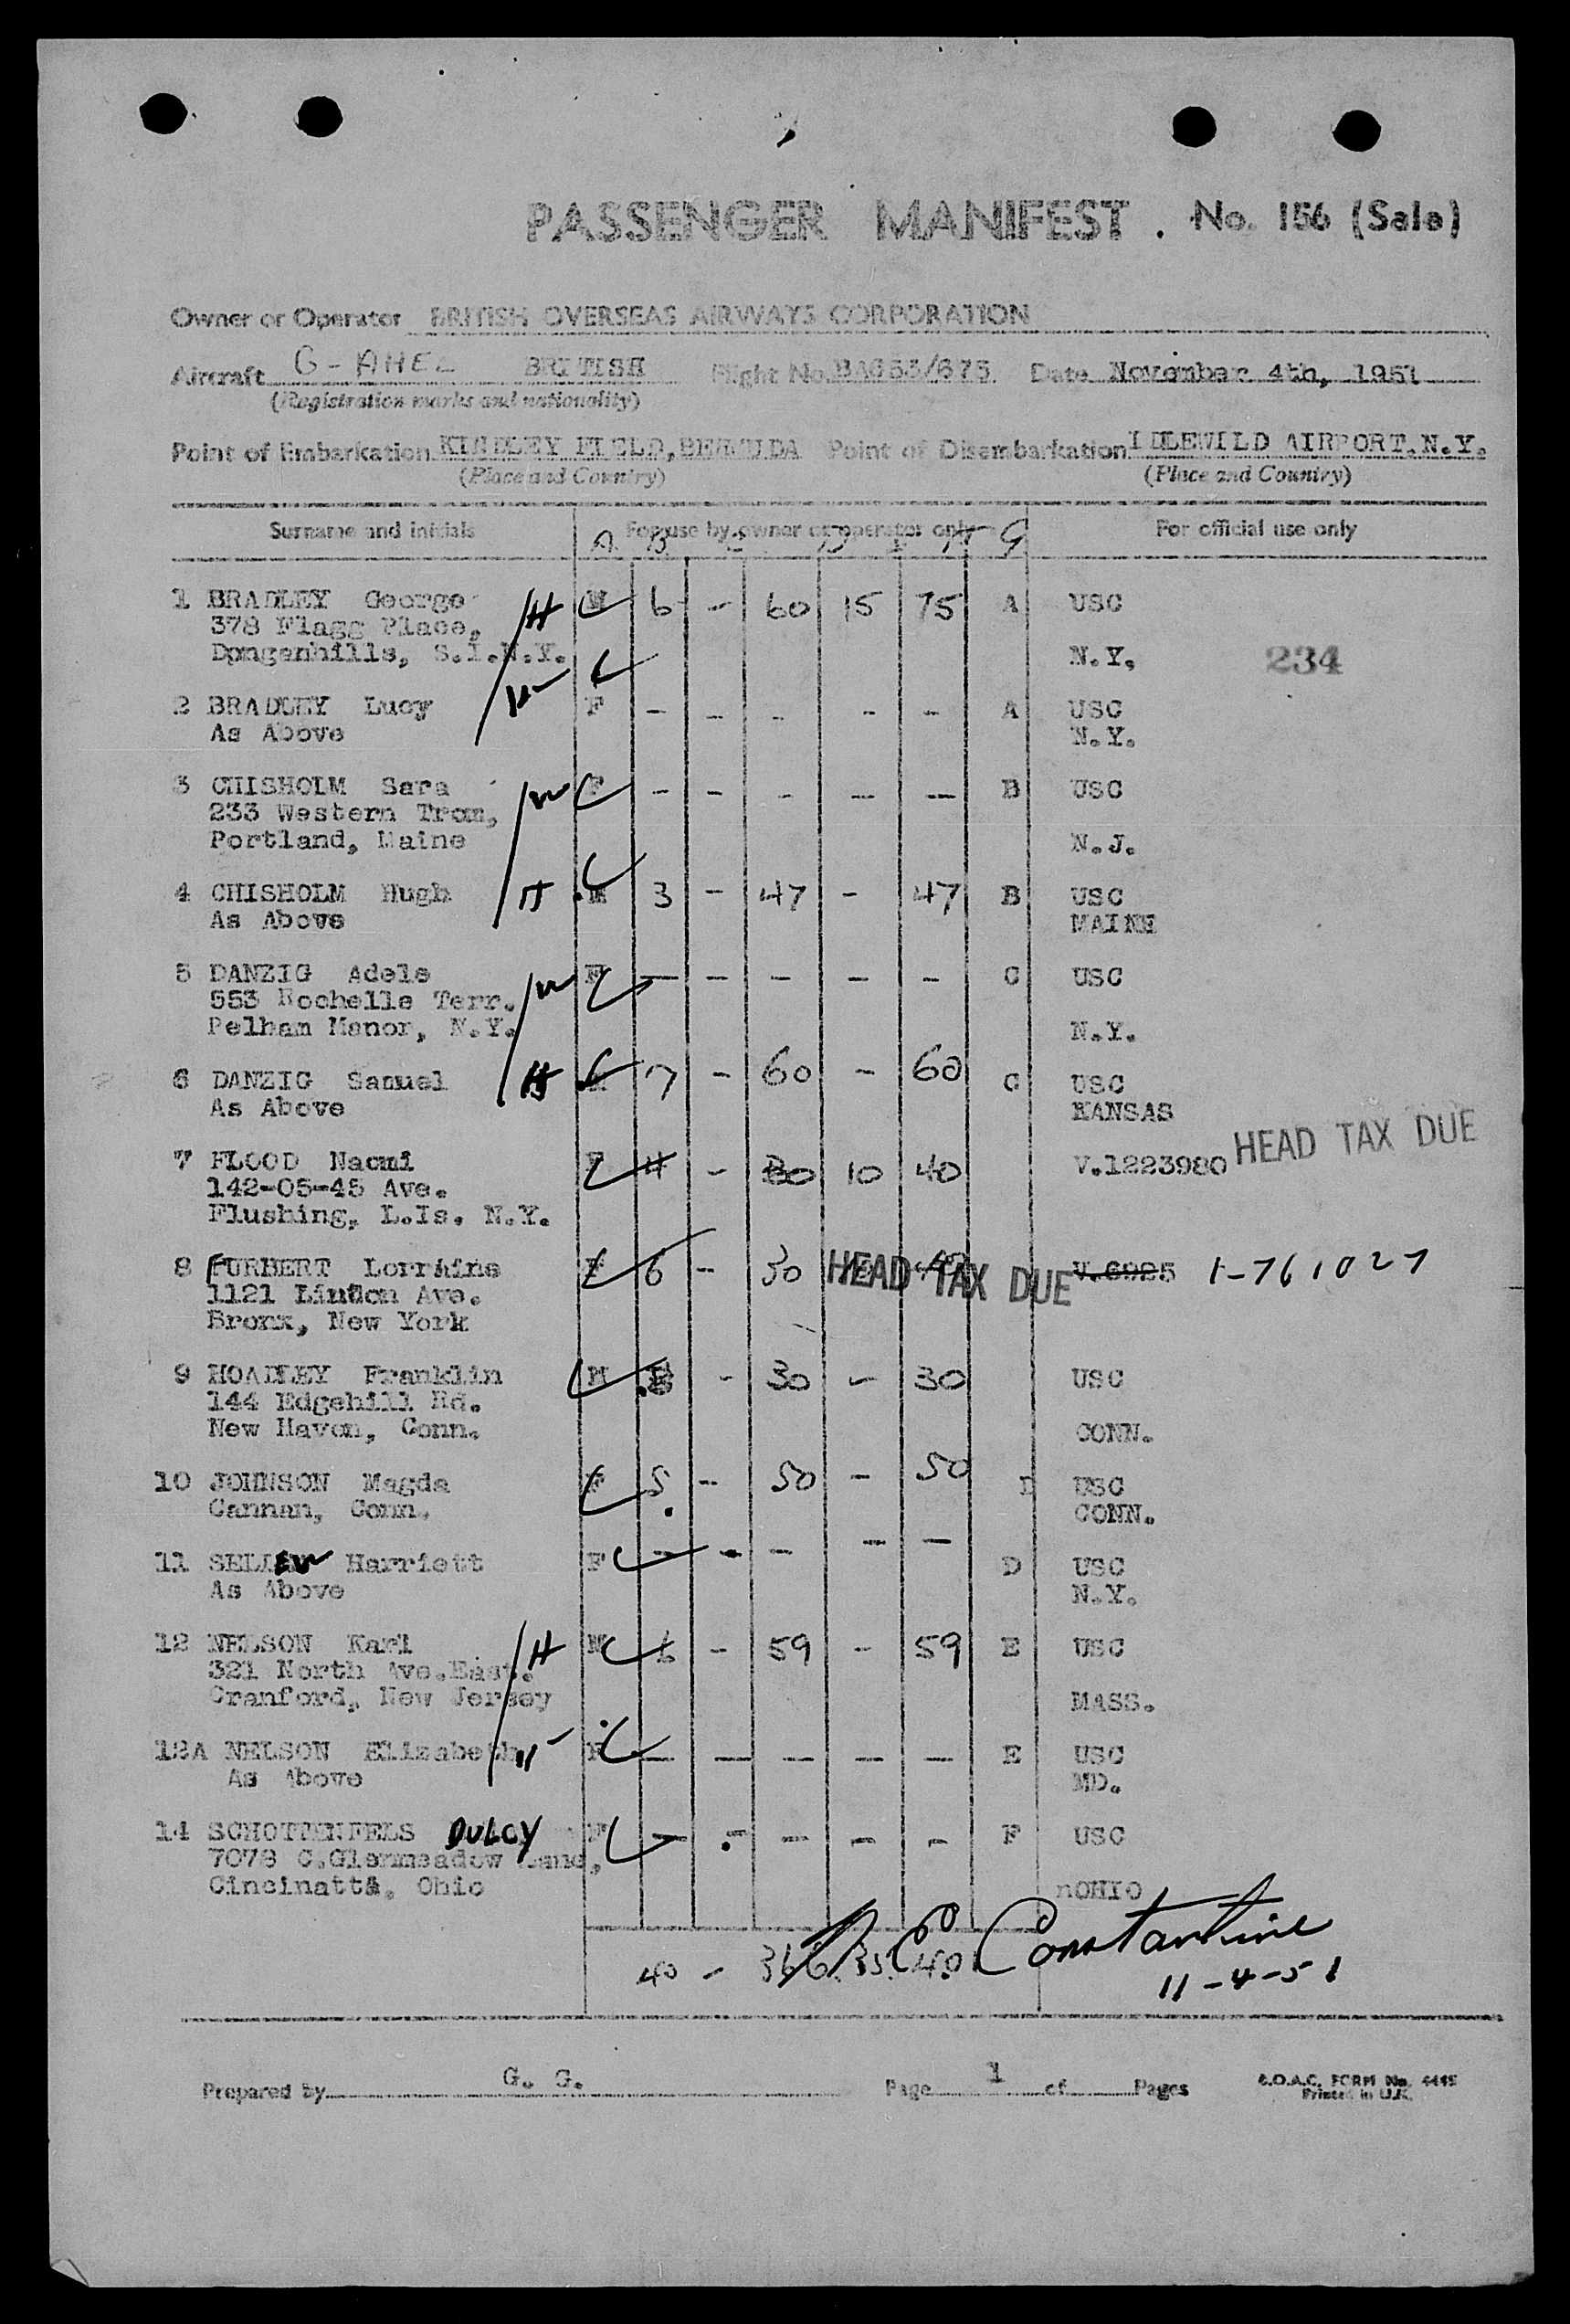 PASSENGER MANIFEST. No. 156 (Sale)
Owner or Operator BRITISH OVERSEAS AIRWAYS CORPORATION
Aircraft G-AHE BRITISH Flight No. BA653/675 Date November 4th, 1951
(Registration marks and nationality)
Point of Embarkation KINDLEY FIELD, BERMUDA Point of Disembarkation IDLEWILD AIRPORT.N.Y.
(Place and Country) (Place and Country)
Surname and initials For use by owner or operator only For official use only
A B D G
1 BRADLEY George H M 6 - 60 15 75 A USC
378 Flagg Place,
Dongenhills, S.I.N.Y. N.Y, 234
2 BRADLEY Lucy F - - - - - A USC
As Above N.Y.
3 CHISHOLM Sara F - - - - - B USC
233 Western Trom,
Portland, Maine N.J.
4 CHISHOLM Hugh H M 3 - 47 - 47 B USC
As Above MAINE
5 DANZIG Adele F - - - - - C USC
553 Rochelle Terr.
Pelham Manor, N.Y. N.Y.
6 DANZIG Samuel H 7 - 60 - 60 C USC
As Above KANSAS
HEAD TAX DUE
7 FLOOD Naomi F 4 - 30 10 40 V.1223980
142-05-45 Ave.
Flushing, L.Is. N.Y.
8 FURBERT Lorraine F 6 - 30 HEAD TAX DUE V.6925 1-761027
1121 Ave.
Bronx, New York
9 HOADLEY Franklin M - 30 - 30 USC
144 Edgehill Rd.
New Haven, Conn. CONN.
10 JOHNSON Magda F 5 - 50 - 50 D USC
Cannan, Conn. CONN.
11 Harriett F - - - - - D USC
As Above N.Y.
12 NELSON Karl H M 6 - 59 - 59 E USC
321 North Ave.East.
Cranford, New Jersey MASS.
12A NELSON Elizabeth F - - - - - E USC
As Above MD.
14 SCHOTTENFELS DULCY F - - - - - F USC
7078 C.Glenmeadow Lane,
Cincinatti, Ohio nOHIO
40 - 366 35 Constantine
11-4-51
Prepared by G. G. Page 1 of Pages B.O.A.C. FORM No. 4445
Printed in U.K.